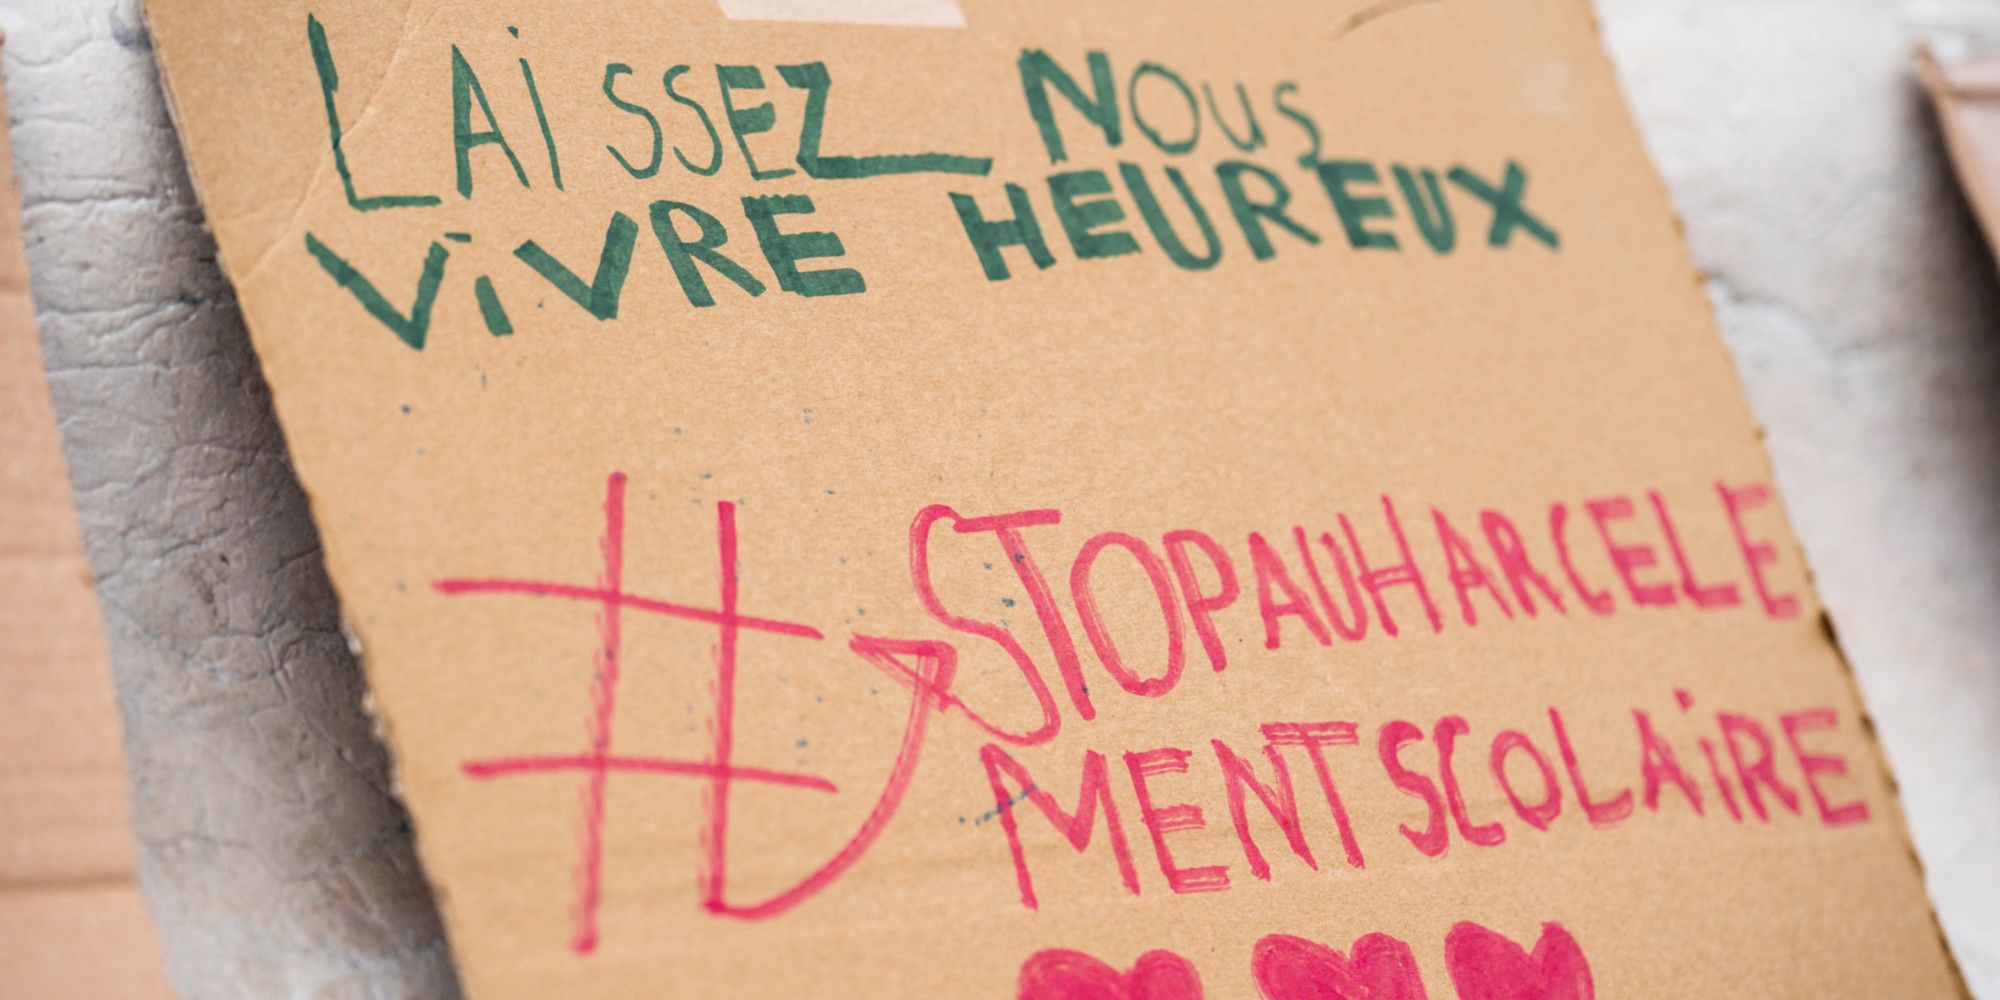 LAiSSEZ NOUS
ViVRE HEUREUX
#STOPAUHARCELE
MENTSCOLAiRE